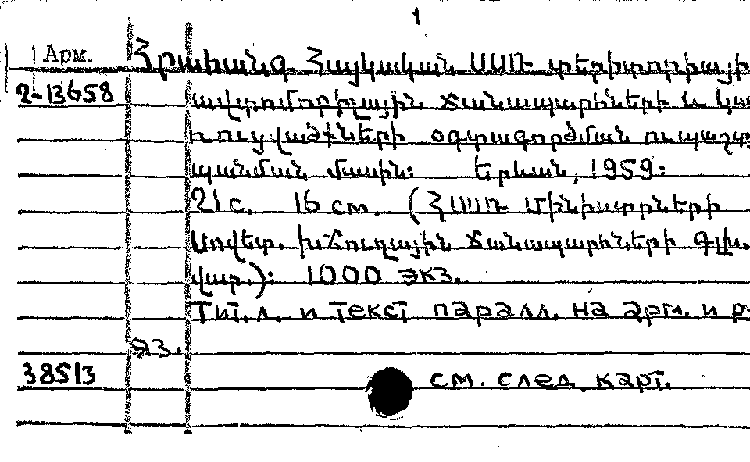 1
Арм. Հրահանգ Հայկական ՍՍՌ տերիտորիայի
2-13658 ավտոմոբիլային ճանապարհների և կա
ռուցվածքների օգտագործման ու պաշտ
պանման մասին: Երևան, 1959:
21 с. 16 см. (ՀՍՍՌ Մինիստրների
Սովետ. խճուղային ճանապարհների գլխ.
վար.): 1000 экз.
Тит. л. и текст паралл. на арм. и р
яз.
38513 см. след. карт.